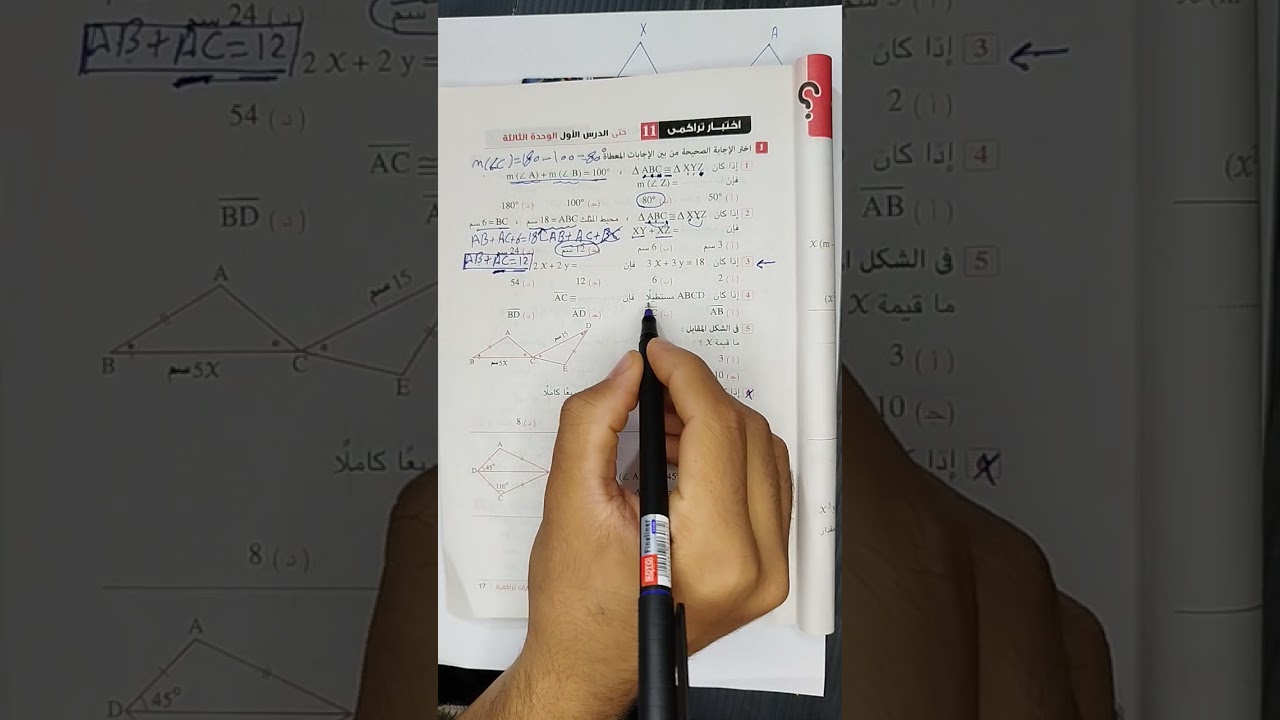 X
A
اختبار تراكمى 11 حتى الدرس الأول الوحدة الثالثة
1 اختر الإجابة الصحيحة من بين الإجابات المعطاة
m(∠C)=180-100=80°
1 إذا كان Δ ABC ≅ Δ XYZ ، m (∠ A) + m (∠ B) = 100°
فإن m (∠ Z) =
(أ) 50° (ب) 80° (حـ) 100° (د) 180°
2 إذا كان Δ ABC ≅ Δ XYZ ، محيط المثلث ABC = 18 سم ، BC = 6 سم
فإن XY + XZ =
AB+AC+6=18 AB+AC+BC
(أ) 3 سم (ب) 6 سم (حـ) 12 سم (د) 24 سم
AB+AC=12
3 إذا كان 3 X + 3 y = 18 فإن 2 X + 2 y =
(أ) 2 (ب) 6 (حـ) 12 (د) 54
4 إذا كان ABCD مستطيلًا فإن AC ≅
(أ) AB (ب) (حـ) AD (د) BD
5 فى الشكل المقابل :
ما قيمة X ؟
(أ) 3
(حـ) 10
A B C D E
15 سم
5X سم
إذا كا
يعًا كاملًا
(د) 8
A D C
45°
110°
17
؟